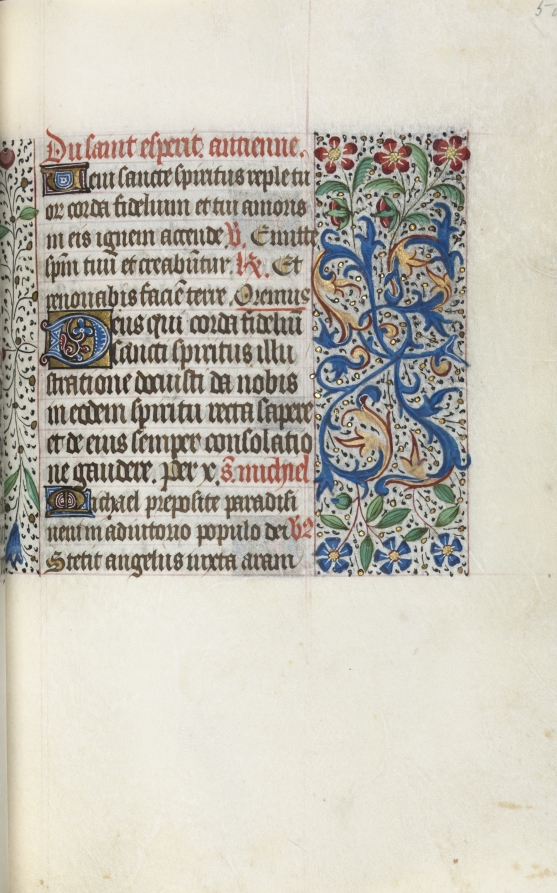 Du saint esperit. antienne.
Veni sancte spiritus reple tu
or corda fidelium et tui amoris
in eis ignem accende V. Emitte
spm̄ tuū et creabūtur. R. Et
renouabis faciē terre. Oremus
Deus qui corda fideliū
sancti spiritus illu
stratione docuisti da nobis
in eodem spiritu recta sapere
et de eius semper consolatio
ne gaudere. Per x̄. S. michiel
Michael preposite paradisi
veni in adiutorio populo dei V
Stetit angelus iuxta aram